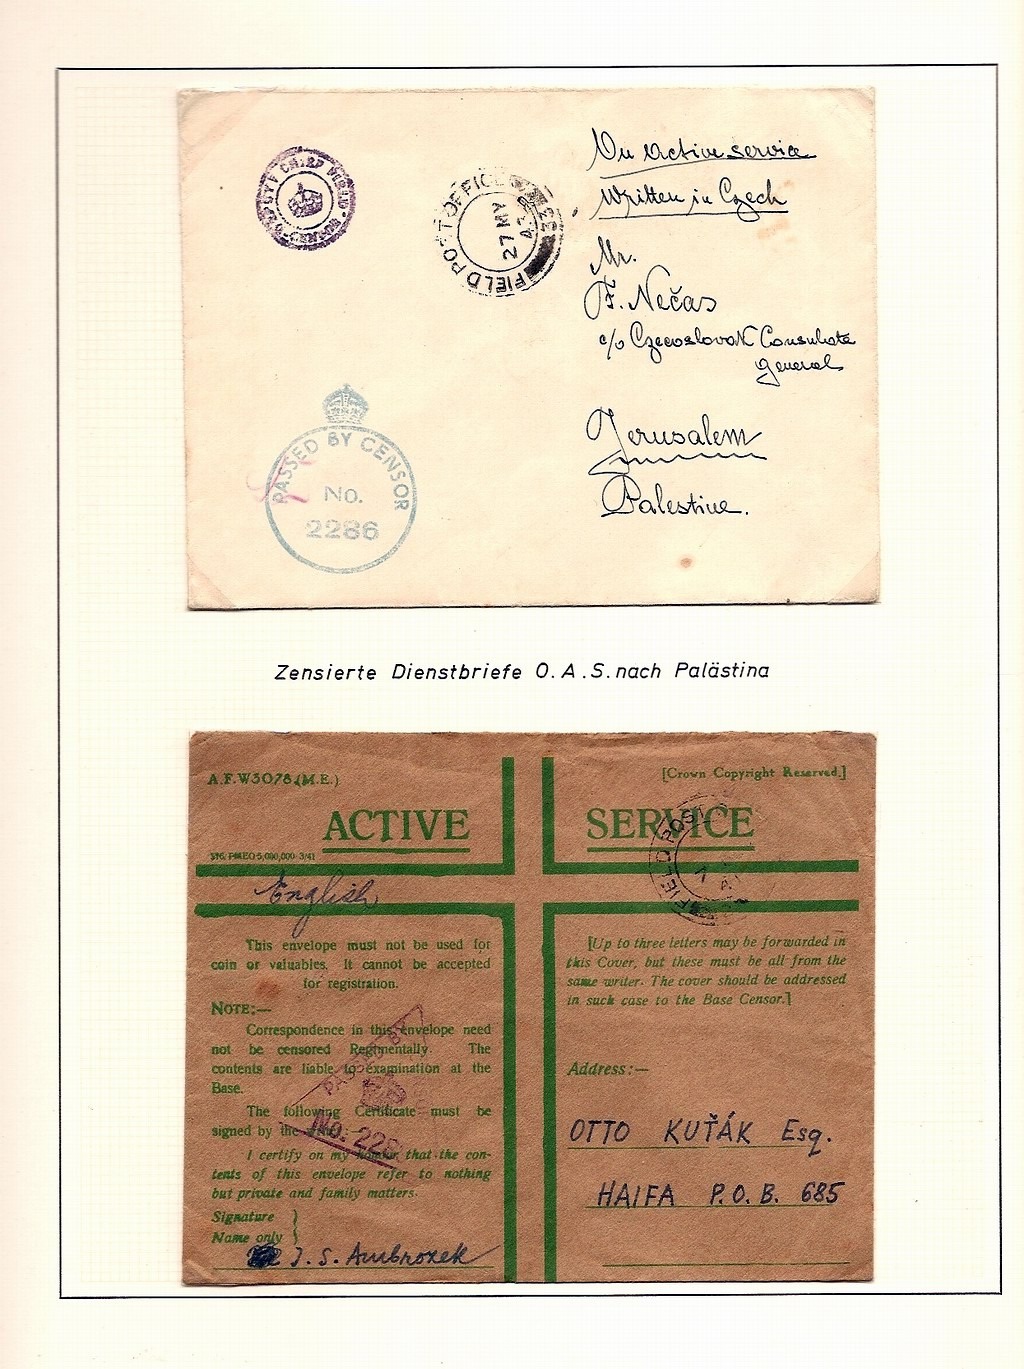 On Active service
Written in Czech
FIELD POST OFFICE
27 MY
Mr.
F. Nečas
c/o Czecoslovak Consulate
general
Jerusalem
Palestine.
PASSED BY CENSOR
No.
2286
Zensierte Dienstbriefe O.A.S. nach Palästina
A.F.W3078.(M.E.)
[Crown Copyright Reserved.]
ACTIVE SERVICE
5,000,000-3/41
FIELD POST
English
This envelope must not be used for
coin or valuables. It cannot be accepted
for registration.
NOTE:—
Correspondence in this envelope need
not be censored Regimentally. The
contents are liable to examination at the
Base.
The following Certificate must be
signed by the
I certify on my honour that the con-
tents of this envelope refer to nothing
but private and family matters.
Signature }
Name only }
J. S. Ambrozek
PASSED BY
No. 22
[Up to three letters may be forwarded in
this Cover, but these must be all from the
same writer. The cover should be addressed
in such case to the Base Censor.]
Address:—
OTTO KUŤÁK Esq.
HAIFA P.O.B. 685